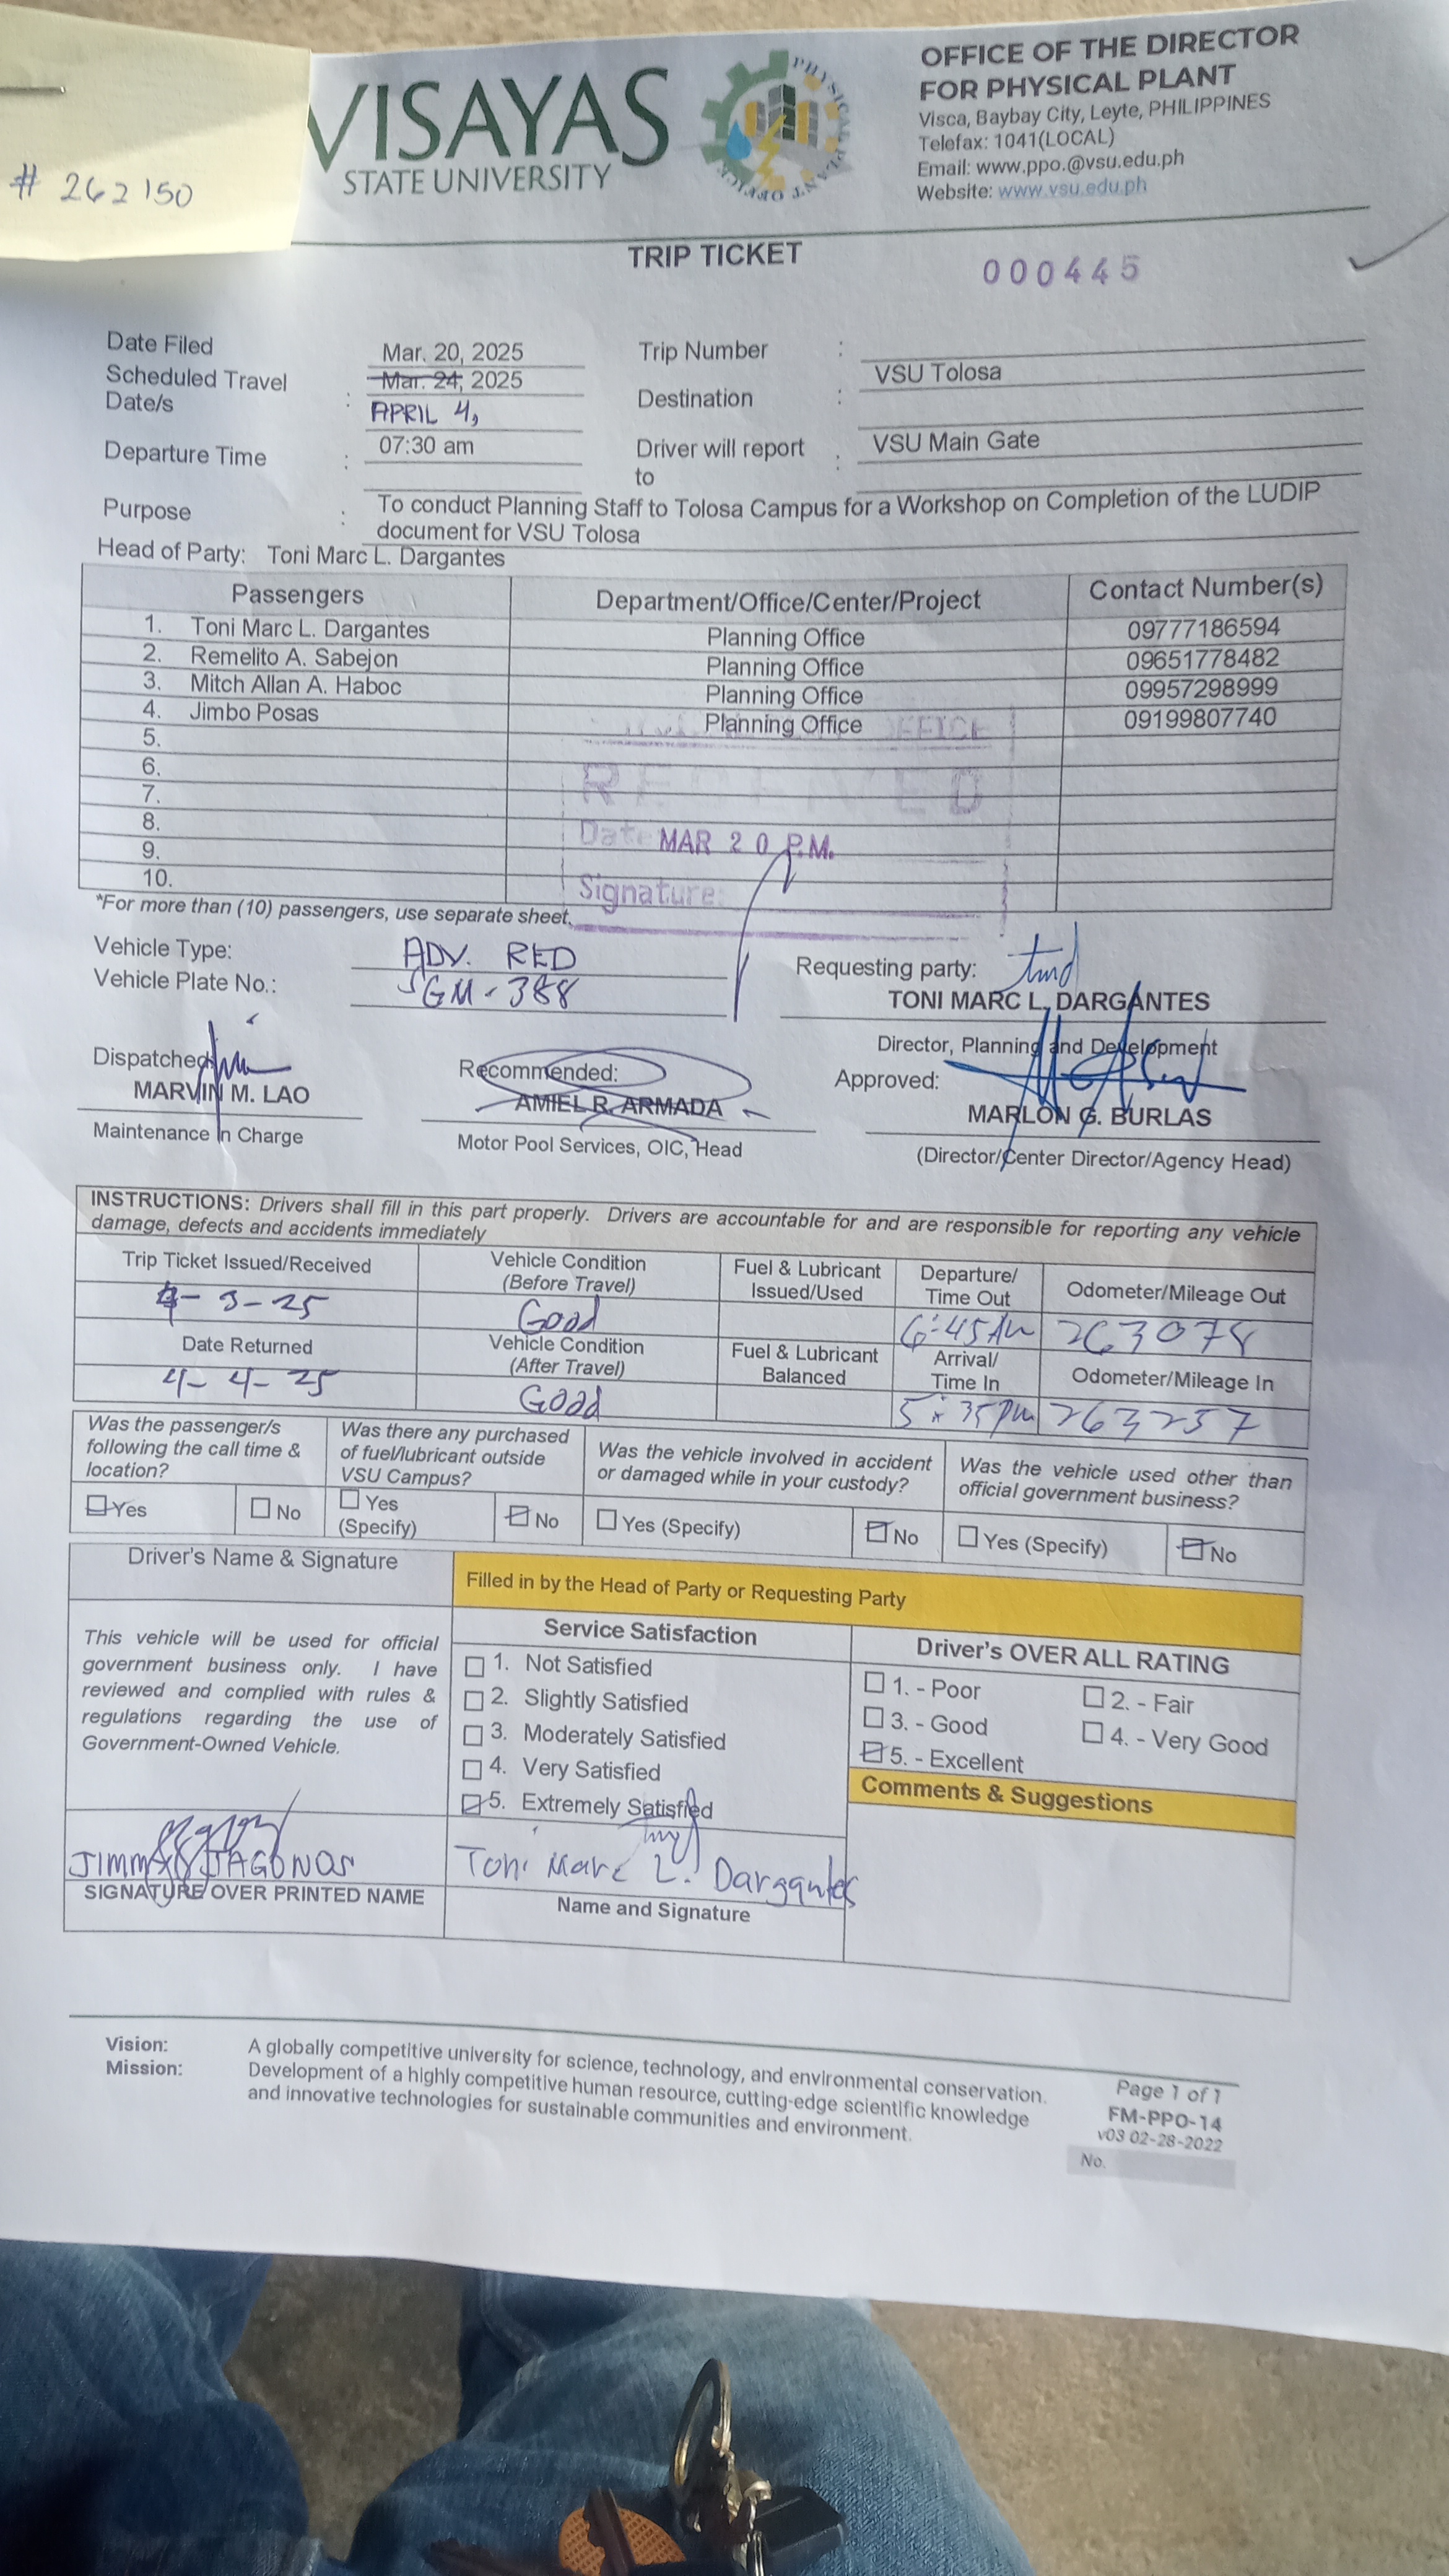 # 262150
VISAYAS
STATE UNIVERSITY
PHYSICAL PLANT OFFICE
OFFICE OF THE DIRECTOR
FOR PHYSICAL PLANT
Visca, Baybay City, Leyte, PHILIPPINES
Telefax: 1041(LOCAL)
Email: www.ppo.@vsu.edu.ph
Website: www.vsu.edu.ph
TRIP TICKET
000445
Date Filed Mar. 20, 2025
Scheduled Travel Date/s : Mar. 24, 2025
APRIL 4,
Departure Time : 07:30 am
Trip Number :
Destination : VSU Tolosa
Driver will report to : VSU Main Gate
Purpose : To conduct Planning Staff to Tolosa Campus for a Workshop on Completion of the LUDIP
document for VSU Tolosa
Head of Party: Toni Marc L. Dargantes
Passengers Department/Office/Center/Project Contact Number(s)
1. Toni Marc L. Dargantes Planning Office 09777186594
2. Remelito A. Sabejon Planning Office 09651778482
3. Mitch Allan A. Haboc Planning Office 09957298999
4. Jimbo Posas Planning Office 09199807740
5.
6.
7.
8.
9.
10.
OFFICE
RECEIVED
Date MAR 20 P.M.
Signature:
*For more than (10) passengers, use separate sheet.
Vehicle Type: ADV. RED
Vehicle Plate No.: SGM-388
Requesting party:
TONI MARC L. DARGANTES
Director, Planning and Development
Dispatched
MARVIN M. LAO
Maintenance In Charge
Recommended:
AMIEL R. ARMADA
Motor Pool Services, OIC, Head
Approved:
MARLON G. BURLAS
(Director/Center Director/Agency Head)
INSTRUCTIONS: Drivers shall fill in this part properly. Drivers are accountable for and are responsible for reporting any vehicle
damage, defects and accidents immediately
Trip Ticket Issued/Received Vehicle Condition (Before Travel) Fuel & Lubricant Issued/Used Departure/ Time Out Odometer/Mileage Out
4-3-25 Good 6:45 AM 263078
Date Returned Vehicle Condition (After Travel) Fuel & Lubricant Balanced Arrival/ Time In Odometer/Mileage In
4-4-25 Good 5:35 PM 263257
Was the passenger/s following the call time & location?
Yes No
Was there any purchased of fuel/lubricant outside VSU Campus?
Yes (Specify) No
Was the vehicle involved in accident or damaged while in your custody?
Yes (Specify) No
Was the vehicle used other than official government business?
Yes (Specify) No
Driver's Name & Signature
Filled in by the Head of Party or Requesting Party
This vehicle will be used for official
government business only. I have
reviewed and complied with rules &
regulations regarding the use of
Government-Owned Vehicle.
Service Satisfaction
1. Not Satisfied
2. Slightly Satisfied
3. Moderately Satisfied
4. Very Satisfied
5. Extremely Satisfied
Driver's OVER ALL RATING
1. - Poor 2. - Fair
3. - Good 4. - Very Good
5. - Excellent
Comments & Suggestions
SIGNATURE OVER PRINTED NAME
Toni Marc L. Dargantes
Name and Signature
Vision: A globally competitive university for science, technology, and environmental conservation.
Mission: Development of a highly competitive human resource, cutting-edge scientific knowledge
and innovative technologies for sustainable communities and environment.
Page 1 of 1
FM-PPO-14
v03 02-28-2022
No.